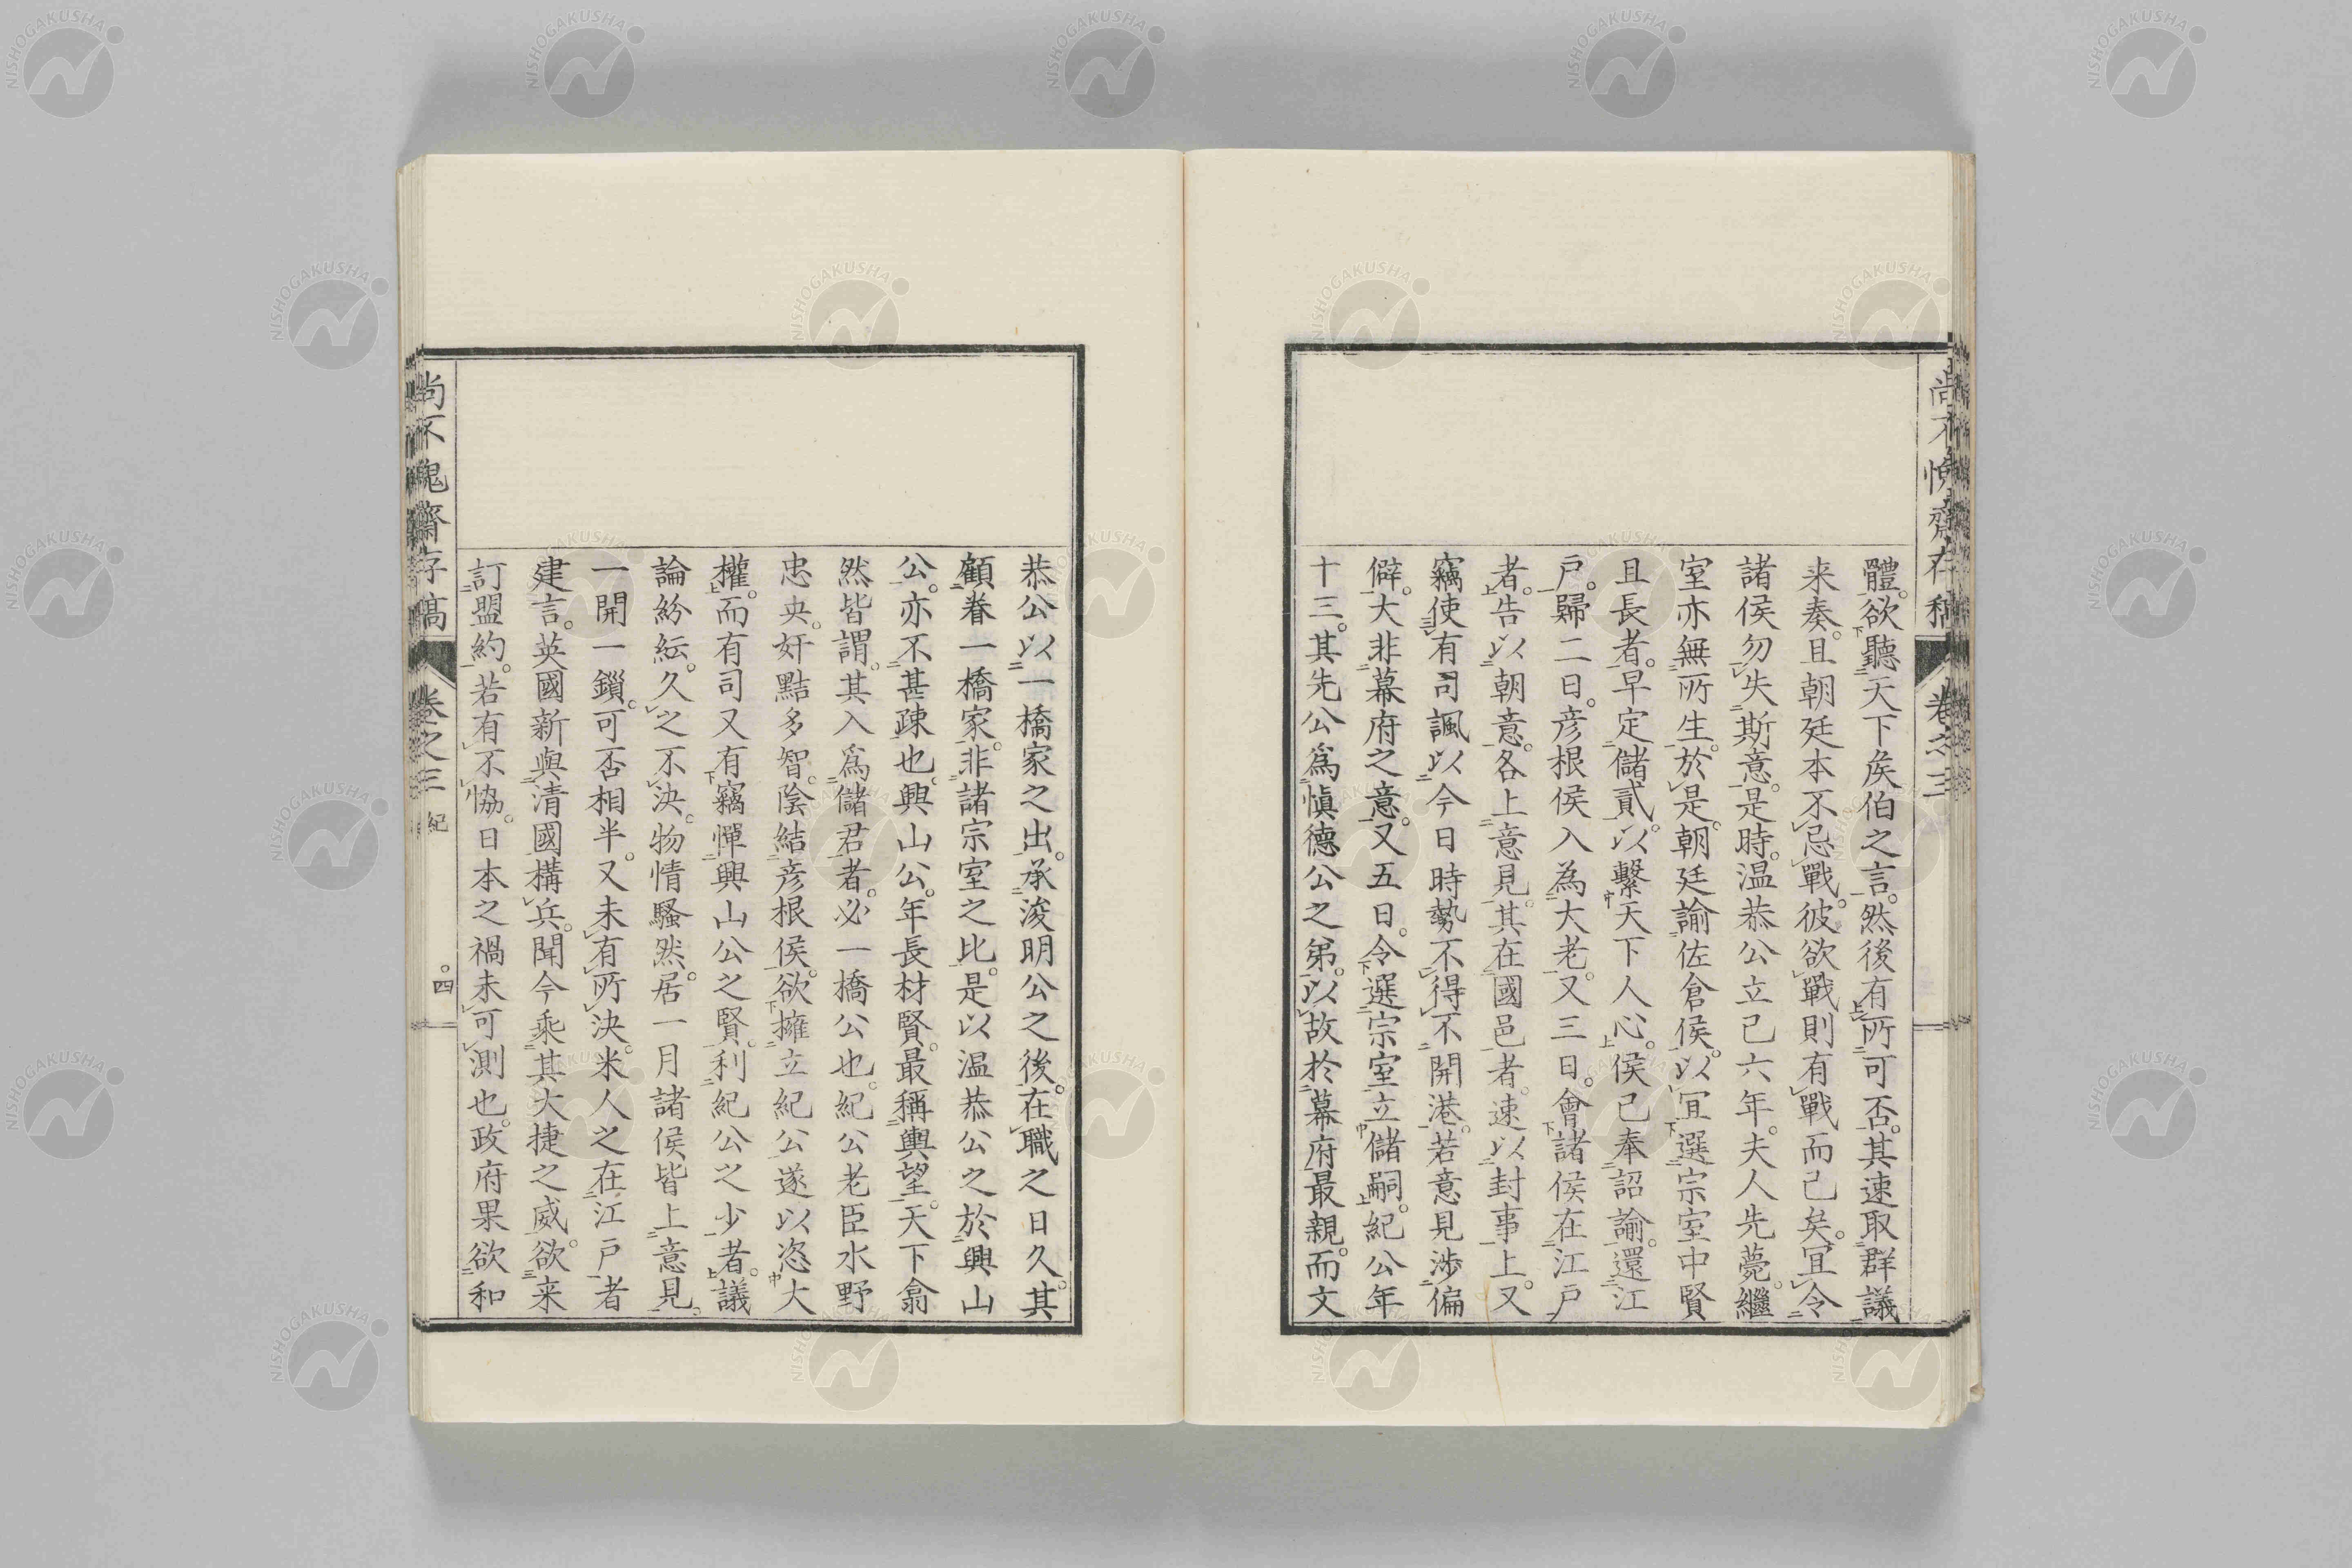 尚不愧齋存稿 卷之三
體。欲聽天下矦伯之言。然後有所可否。其速取群議
来奏。且朝廷本不忌戰。彼欲戰則有戰而己矣。宜令
諸侯勿失斯意。是時。温恭公立己六年。夫人先薨。繼
室亦無所生。於是。朝廷諭佐倉侯。以宜選宗室中賢
且長者。早定儲貳。以繫天下人心。侯己奉詔諭。還江
戸。歸二日。彦根侯入為大老。又三日。會諸侯在江戸
者。告以朝意。各上意見。其在國邑者。速以封事上。又
竊使有司諷以今日時勢不得不開港。若意見渉偏
僻。大非幕府之意。又五日。令選宗室立儲嗣。紀公年
十三。其先公爲愼德公之弟。以故於幕府最親。而文
恭公以一橋家之出。承浚明公之後。在職之日久。其
顧眷一橋家。非諸宗室之比。是以温恭公之於興山
公。亦不甚疎也。興山公。年長材賢。最稱輿望。天下翕
然皆謂。其入爲儲君者。必一橋公也。紀公老臣水野
忠央。奸黠多智。陰結彦根侯。欲擁立紀公遂以恣大
權。而有司又有竊憚興山公之賢。利紀公之少者。議
論紛紜。久之不決。物情騷然。居一月諸侯皆上意見。
一開一鎖。可否相半。又未有所決。米人之在江戸者
建言。英國新與清國構兵。聞今乘其大捷之威。欲来
訂盟約。若有不恊。日本之禍未可測也。政府果欲和
尚不愧齋存稿 卷之三 紀 。四
NISHOGAKUSHA